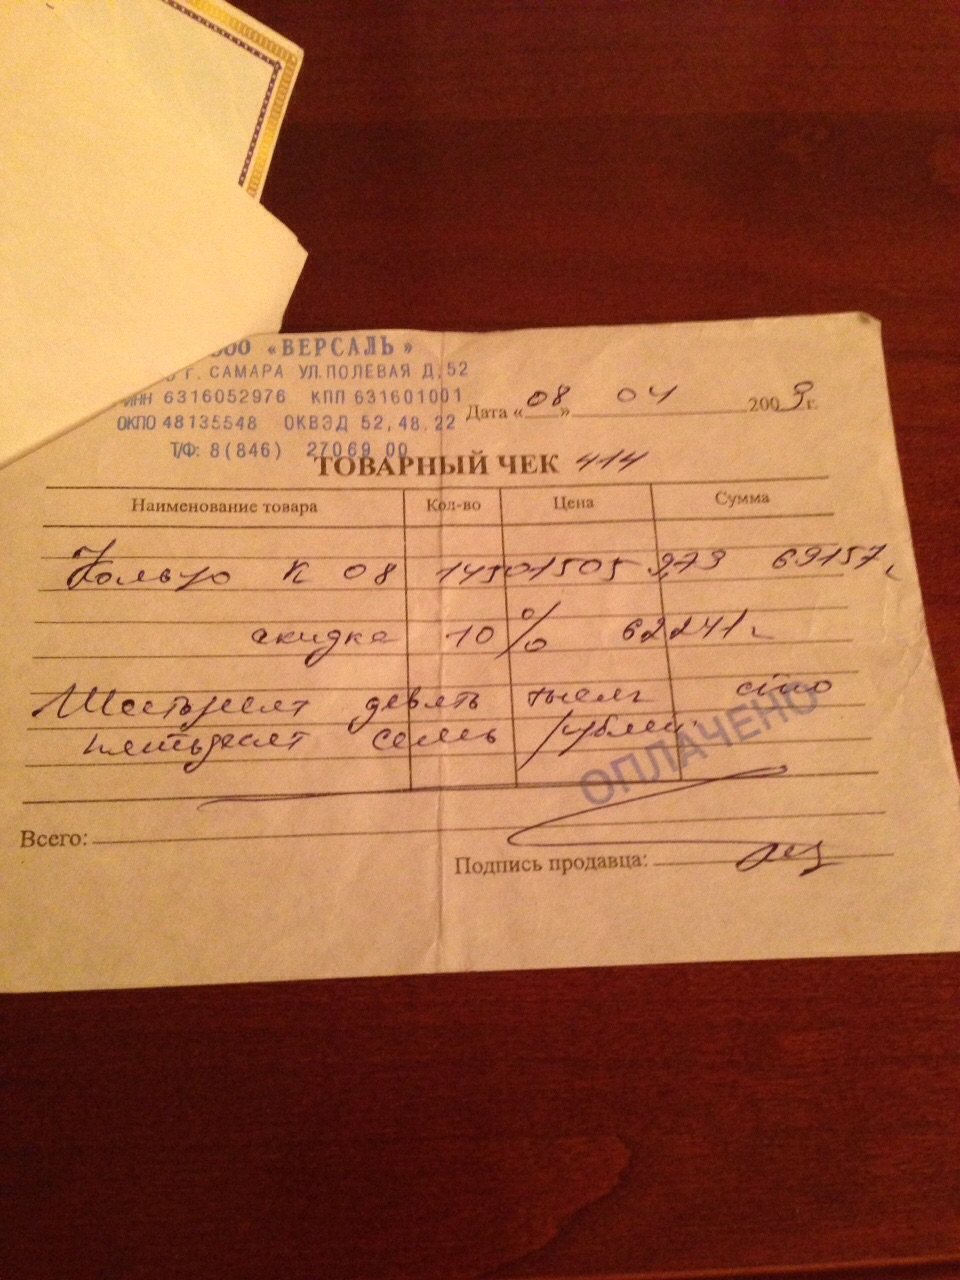 ООО «ВЕРСАЛЬ»
Г. САМАРА УЛ.ПОЛЕВАЯ Д.52
ИНН 6316052976 КПП 631601001
ОКПО 48135548 ОКВЭД 52,48.22
Т/Ф: 8(846) 27069 00
Дата «08» 04 2009г.
ТОВАРНЫЙ ЧЕК 414
Наименование товара Кол-во Цена Сумма
Кольцо К 08 14501505 9,73 69157
скидка 10% 62241
Шестьдесят девять тысяч сто
пятьдесят семь рублей
ОПЛАЧЕНО
Всего:
Подпись продавца: